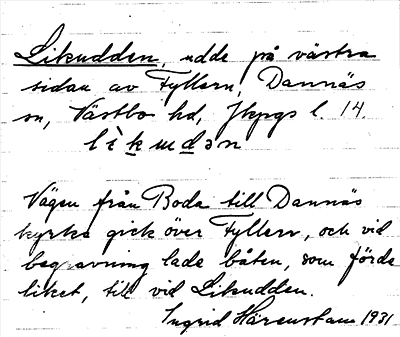 Likudden, udde på västra
sidan av Fyllern, Dannäs
sn, Västbo hd, Jkpgs l. 14.
lìkudən
Vägen från Boda till Dannäs
kyrka gick över Fyllern, och vid
begravning lade båten, som förde
liket, till vid Likudden.
Ingrid Härenstam 1931